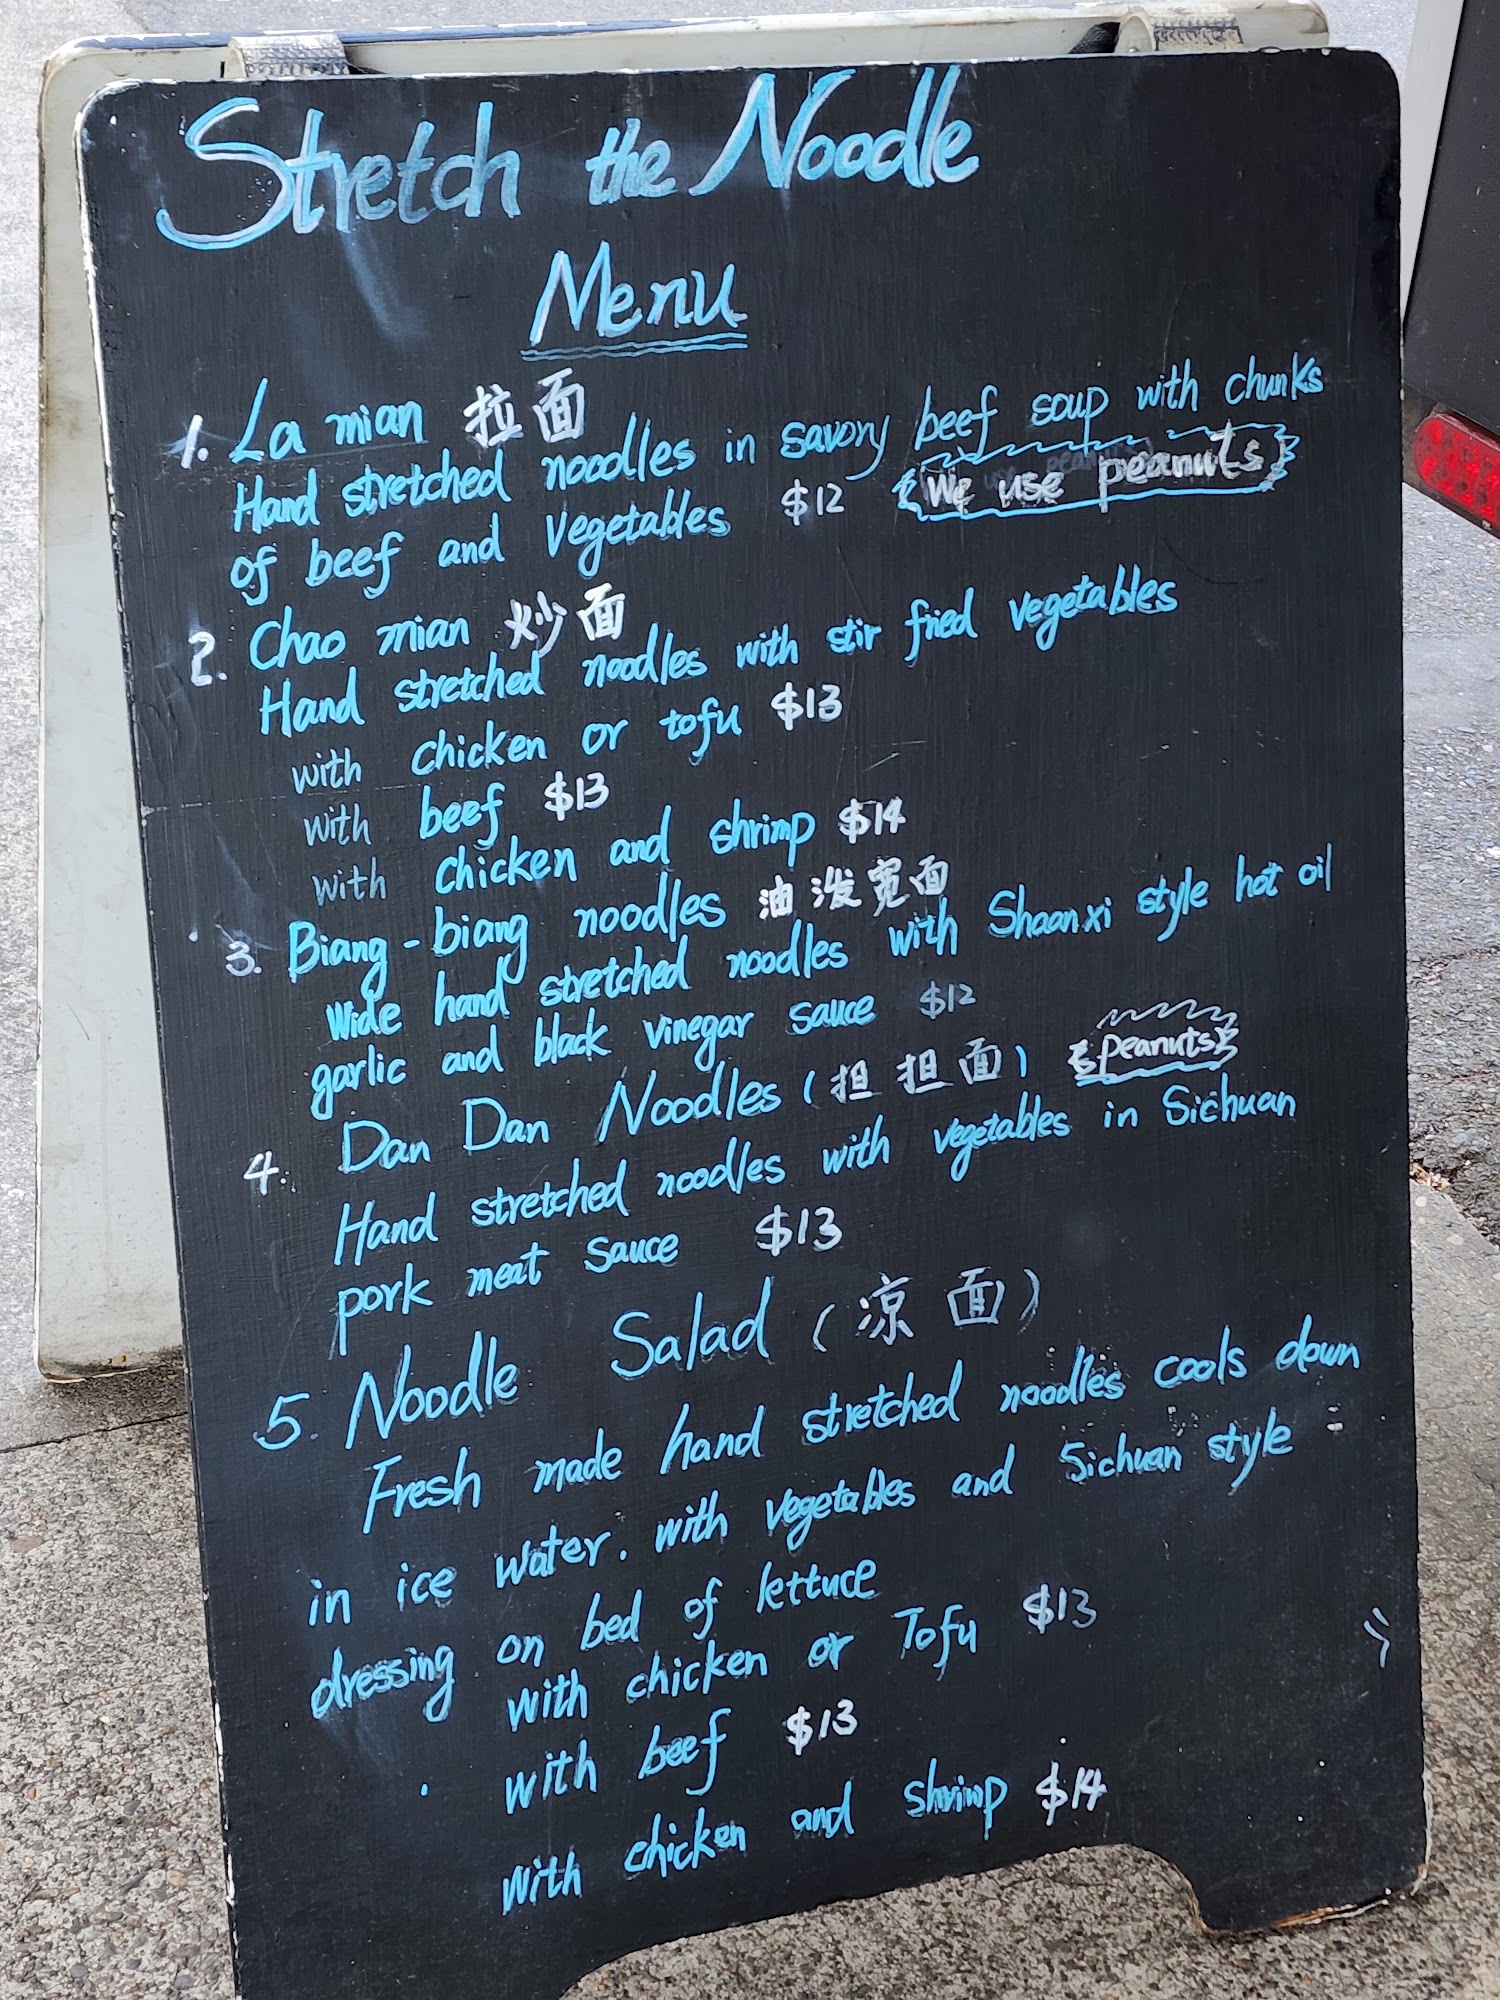 Stretch the Noodle
Menu
1. La mian 拉面
Hand stretched noodles in savory beef soup with chunks
of beef and Vegetables $12
We use peanuts
2. Chao mian 炒面
Hand stretched noodles with stir fried vegetables
with chicken or tofu $13
with beef $13
with chicken and shrimp $14
3. Biang-biang noodles 油泼宽面
Wide hand stretched noodles with Shaanxi style hot oil
garlic and black vinegar sauce $12
4. Dan Dan Noodles (担担面) peanuts
Hand stretched noodles with vegetables in Sichuan
pork meat sauce $13
5. Noodle Salad (凉面)
Fresh made hand stretched noodles cools down
in ice water. with vegetables and Sichuan style
dressing on bed of lettuce
with chicken or Tofu $13
with beef $13
with chicken and shrimp $14